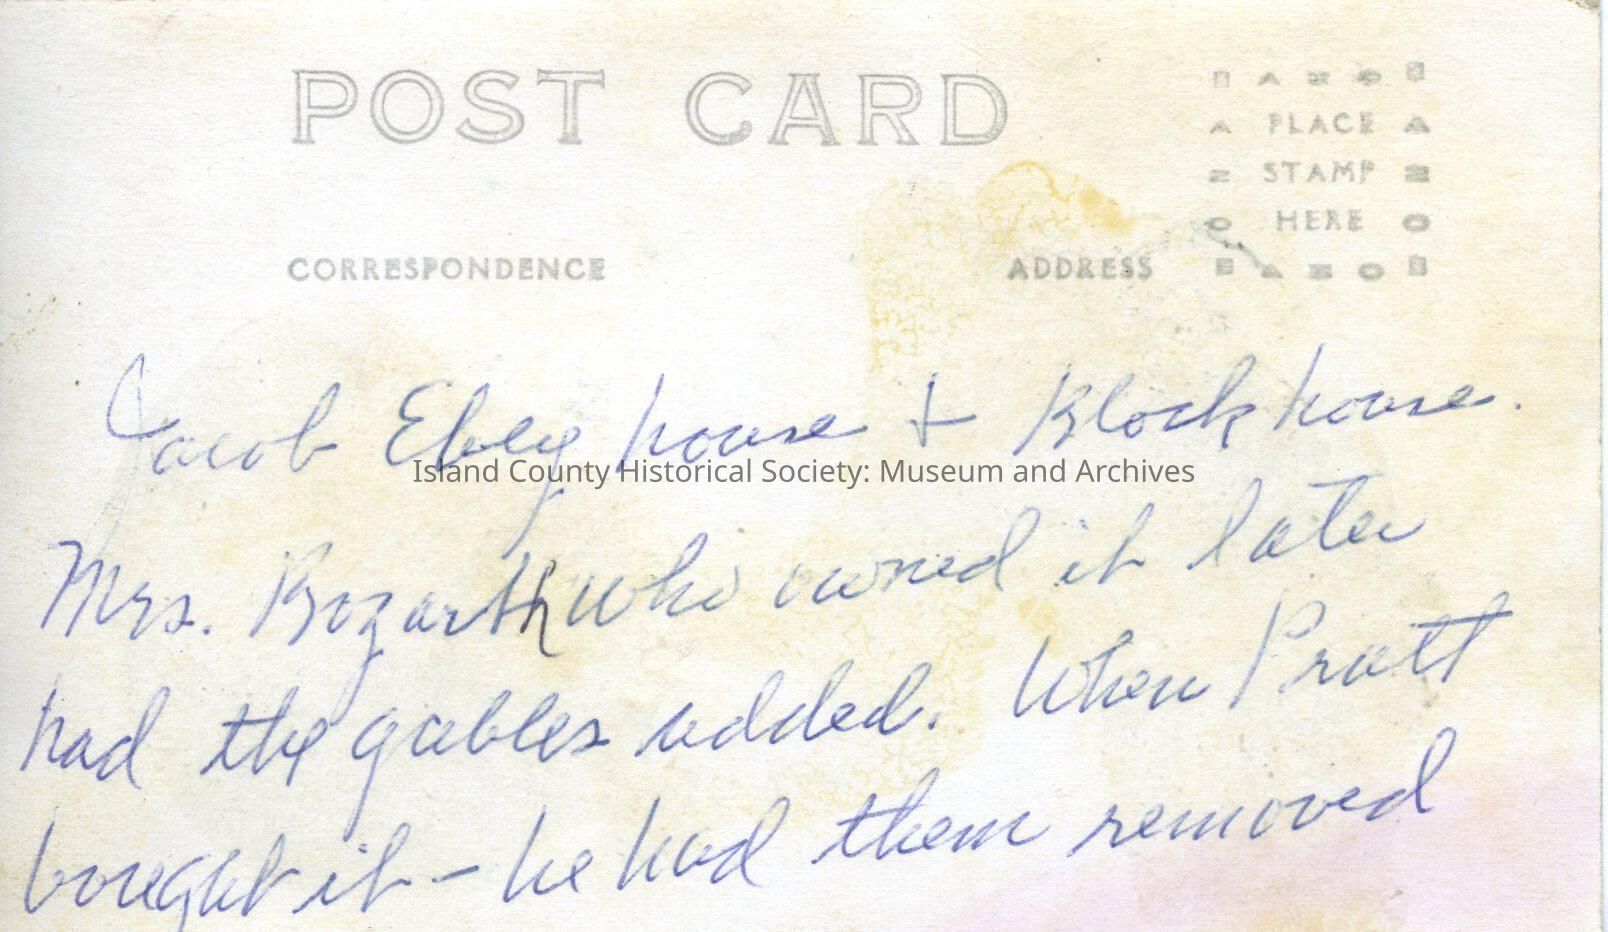 POST CARD
AZO
PLACE
STAMP
HERE
AZO
CORRESPONDENCE ADDRESS
Jacob Ebey house + Blockhouse.
Island County Historical Society: Museum and Archives
Mrs. Bozarth who owned it later
had the gables added. When Pratt
bought it - he had them removed